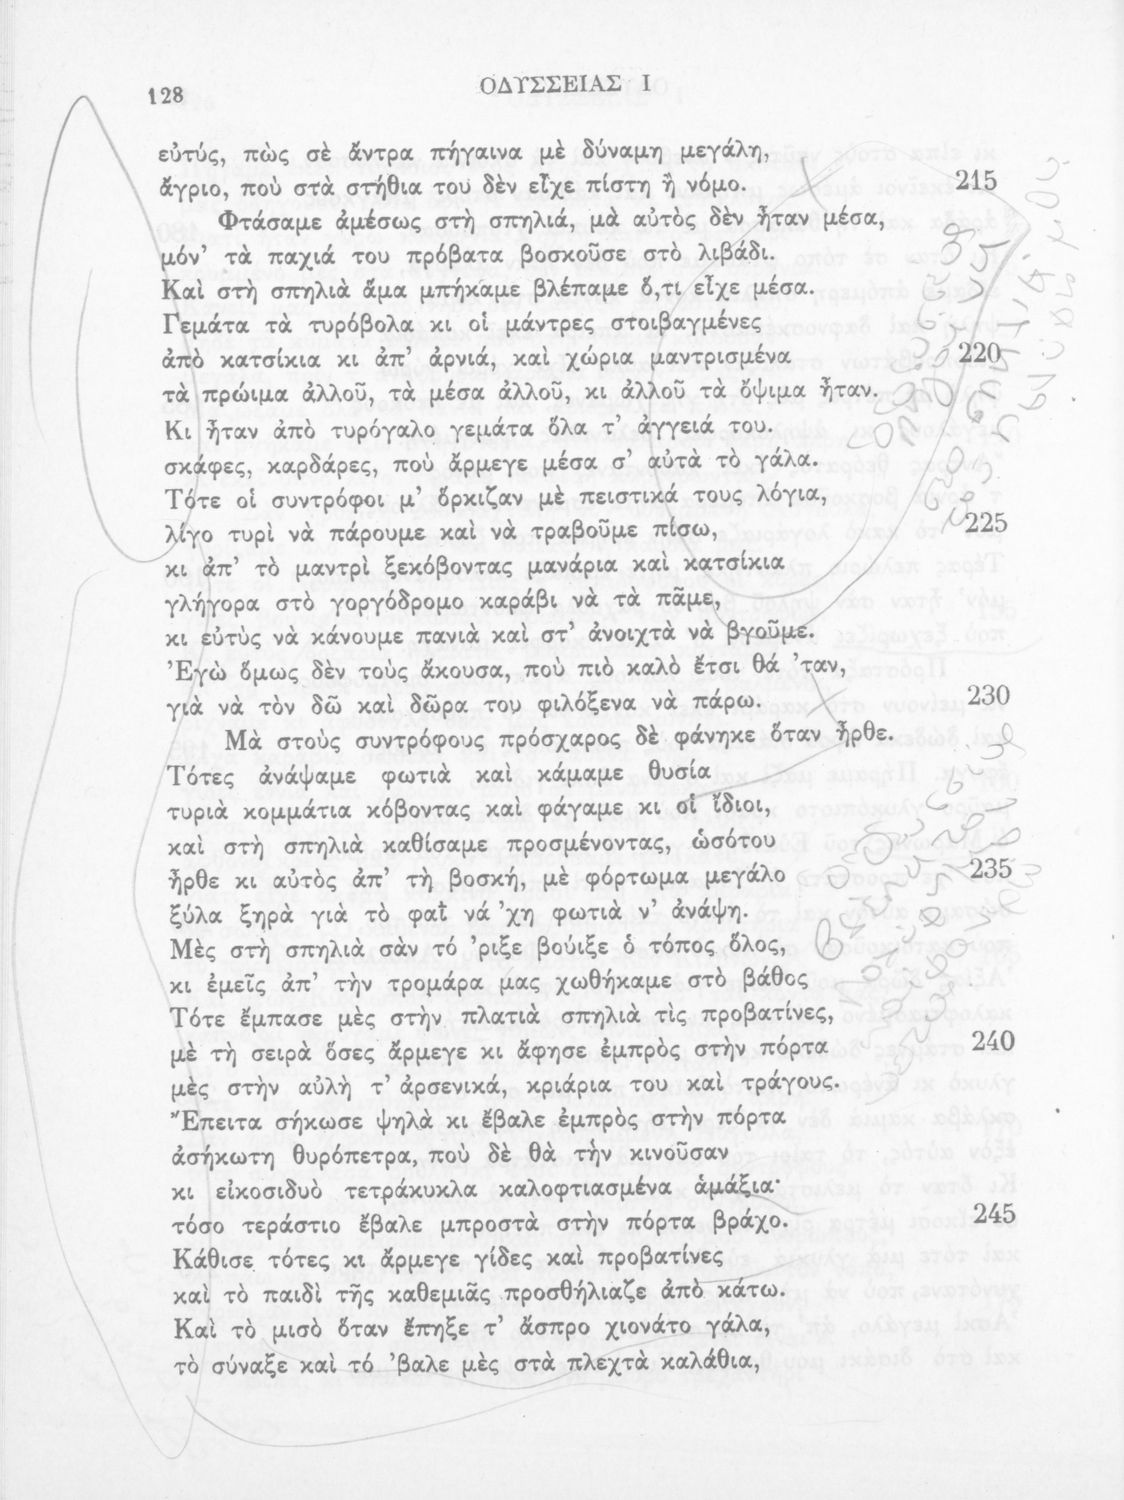 128
ΟΔΥΣΣΕΙΑΣ Ι
εὐτύς, πὼς σὲ ἄντρα πήγαινα μὲ δύναμη μεγάλη,
ἄγριο, ποὺ στὰ στήθια του δὲν εἶχε πίστη ἢ νόμο. 215
Φτάσαμε ἀμέσως στὴ σπηλιά, μὰ αὐτὸς δὲν ἦταν μέσα,
μόν’ τὰ παχιά του πρόβατα βοσκοῦσε στὸ λιβάδι.
Καὶ στὴ σπηλιὰ ἅμα μπήκαμε βλέπαμε ὅ,τι εἶχε μέσα.
Γεμάτα τὰ τυρόβολα κι οἱ μάντρες στοιβαγμένες
ἀπὸ κατσίκια κι ἀπ’ ἀρνιά, καὶ χώρια μαντρισμένα 220
τὰ πρώιμα ἀλλοῦ, τὰ μέσα ἀλλοῦ, κι ἀλλοῦ τὰ ὄψιμα ἦταν.
Κι ἦταν ἀπὸ τυρόγαλο γεμάτα ὅλα τ’ ἀγγειά του.
σκάφες, καρδάρες, ποὺ ἄρμεγε μέσα σ’ αὐτὰ τὸ γάλα.
Τότε οἱ συντρόφοι μ’ ὅρκιζαν μὲ πειστικά τους λόγια,
λίγο τυρὶ νὰ πάρουμε καὶ νὰ τραβοῦμε πίσω, 225
κι ἀπ’ τὸ μαντρὶ ξεκόβοντας μανάρια καὶ κατσίκια
γλήγορα στὸ γοργόδρομο καράβι νὰ τὰ πᾶμε,
κι εὐτὺς νὰ κάνουμε πανιὰ καὶ στ’ ἀνοιχτὰ νὰ βγοῦμε.
Ἐγὼ ὅμως δὲν τοὺς ἄκουσα, ποὺ πιὸ καλὸ ἔτσι θά ’ταν,
γιὰ νὰ τὸν δῶ καὶ δῶρα του φιλόξενα νὰ πάρω. 230
Μὰ στοὺς συντρόφους πρόσχαρος δὲ φάνηκε ὅταν ἦρθε.
Τότες ἀνάψαμε φωτιὰ καὶ κάμαμε θυσία
τυριὰ κομμάτια κόβοντας καὶ φάγαμε κι οἱ ἴδιοι,
καὶ στὴ σπηλιὰ καθίσαμε προσμένοντας, ὡσότου
ἦρθε κι αὐτὸς ἀπ’ τὴ βοσκή, μὲ φόρτωμα μεγάλο 235
ξύλα ξηρὰ γιὰ τὸ φαῒ νά ’χη φωτιὰ ν’ ἀνάψη.
Μὲς στὴ σπηλιὰ σὰν τό ’ριξε βούιξε ὁ τόπος ὅλος,
κι ἐμεῖς ἀπ’ τὴν τρομάρα μας χωθήκαμε στὸ βάθος
Τότε ἔμπασε μὲς στὴν πλατιὰ σπηλιὰ τὶς προβατίνες,
μὲ τὴ σειρὰ ὅσες ἄρμεγε κι ἄφησε ἐμπρὸς στὴν πόρτα 240
μὲς στὴν αὐλὴ τ’ ἀρσενικά, κριάρια του καὶ τράγους.
Ἔπειτα σήκωσε ψηλὰ κι ἔβαλε ἐμπρὸς στὴν πόρτα
ἀσήκωτη θυρόπετρα, ποὺ δὲ θὰ τὴν κινοῦσαν
κι εἰκοσιδυὸ τετράκυκλα καλοφτιασμένα ἁμάξια·
τόσο τεράστιο ἔβαλε μπροστὰ στὴν πόρτα βράχο. 245
Κάθισε τότες κι ἄρμεγε γίδες καὶ προβατίνες
καὶ τὸ παιδὶ τῆς καθεμιᾶς προσθήλιαζε ἀπὸ κάτω.
Καὶ τὸ μισὸ ὅταν ἔπηξε τ’ ἄσπρο χιονάτο γάλα,
τὸ σύναξε καὶ τό ’βαλε μὲς στὰ πλεχτὰ καλάθια,